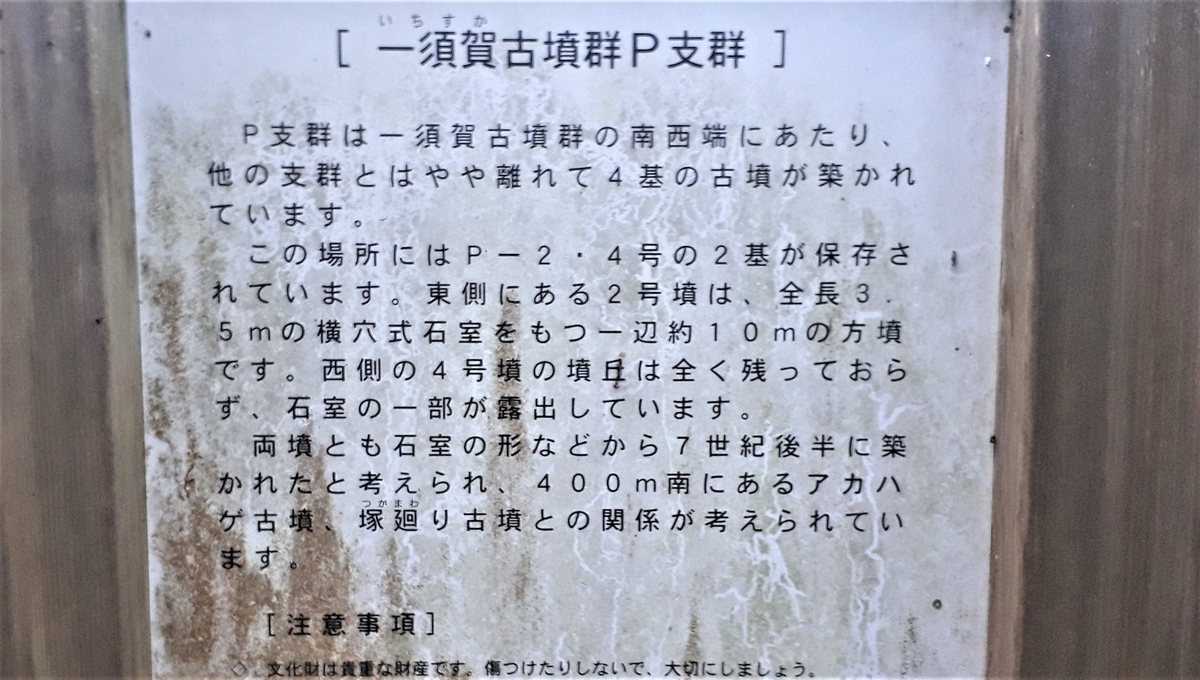 いちすか
[ 一須賀古墳群P支群 ]
P支群は一須賀古墳群の南西端にあたり、
他の支群とはやや離れて4基の古墳が築かれ
ています。
この場所にはP－2・4号の2基が保存さ
れています。東側にある2号墳は、全長3.
5mの横穴式石室をもつ一辺約10mの方墳
です。西側の4号墳の墳丘は全く残っておら
ず、石室の一部が露出しています。
両墳とも石室の形などから7世紀後半に築
かれたと考えられ、400m南にあるアカハ
つかまわ
ゲ古墳、塚廻り古墳との関係が考えられてい
ます。
[注意事項]
◇ 文化財は貴重な財産です。傷つけたりしないで、大切にしましょう。